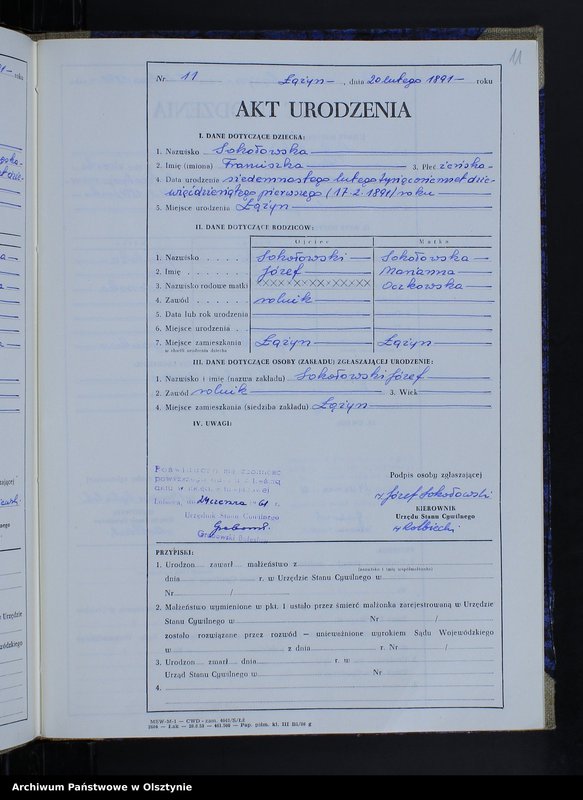 11
Nr 11 Łążyn, dnia 20 lutego 1891 roku
AKT URODZENIA
I. DANE DOTYCZĄCE DZIECKA:
1. Nazwisko Sokołowska
2. Imię (imiona) Franciszka 3. Płeć żeńska
4. Data urodzenia siedemnastego lutego tysiąc osiemset dzie-
więćdziesiątego pierwszego (17.2.1891) roku
5. Miejsce urodzenia Łążyn
II. DANE DOTYCZĄCE RODZICÓW:
Ojciec Matka
1. Nazwisko Sokołowski Sokołowska
2. Imię Józef Marianna
3. Nazwisko rodowe matki XXXXXXXXXXXX Oczkowska
4. Zawód rolnik
5. Data lub rok urodzenia
6. Miejsce urodzenia
7. Miejsce zamieszkania Łążyn Łążyn
w chwili urodzenia dziecka
III. DANE DOTYCZĄCE OSOBY (ZAKŁADU) ZGŁASZAJĄCEJ URODZENIE:
1. Nazwisko i imię (nazwa zakładu) Sokołowski Józef
2. Zawód rolnik 3. Wiek
4. Miejsce zamieszkania (siedziba zakładu) Łążyn
IV. UWAGI:
Poświadczam zgodność
powyższego
aktu
dn. 24 czerwca 1961 r.
Urzędnik Stanu Cywilnego
Podpis osoby zgłaszającej
-/ Józef Sokołowski
KIEROWNIK
Urzędu Stanu Cywilnego
PRZYPISKI:
1. Urodzon zawarł małżeństwo z
(nazwisko i imię współmałżonka)
dnia r. w Urzędzie Stanu Cywilnego w
Nr /
2. Małżeństwo wymienione w pkt. 1 ustało przez śmierć małżonka zarejestrowaną w Urzędzie
Stanu Cywilnego w Nr /
zostało rozwiązane przez rozwód — unieważnione wyrokiem Sądu Wojewódzkiego
w z dnia r. Nr /
3. Urodzon zmarł dnia r. w
Urząd Stanu Cywilnego w Nr
4.
Archiwum Państwowe w Olsztynie